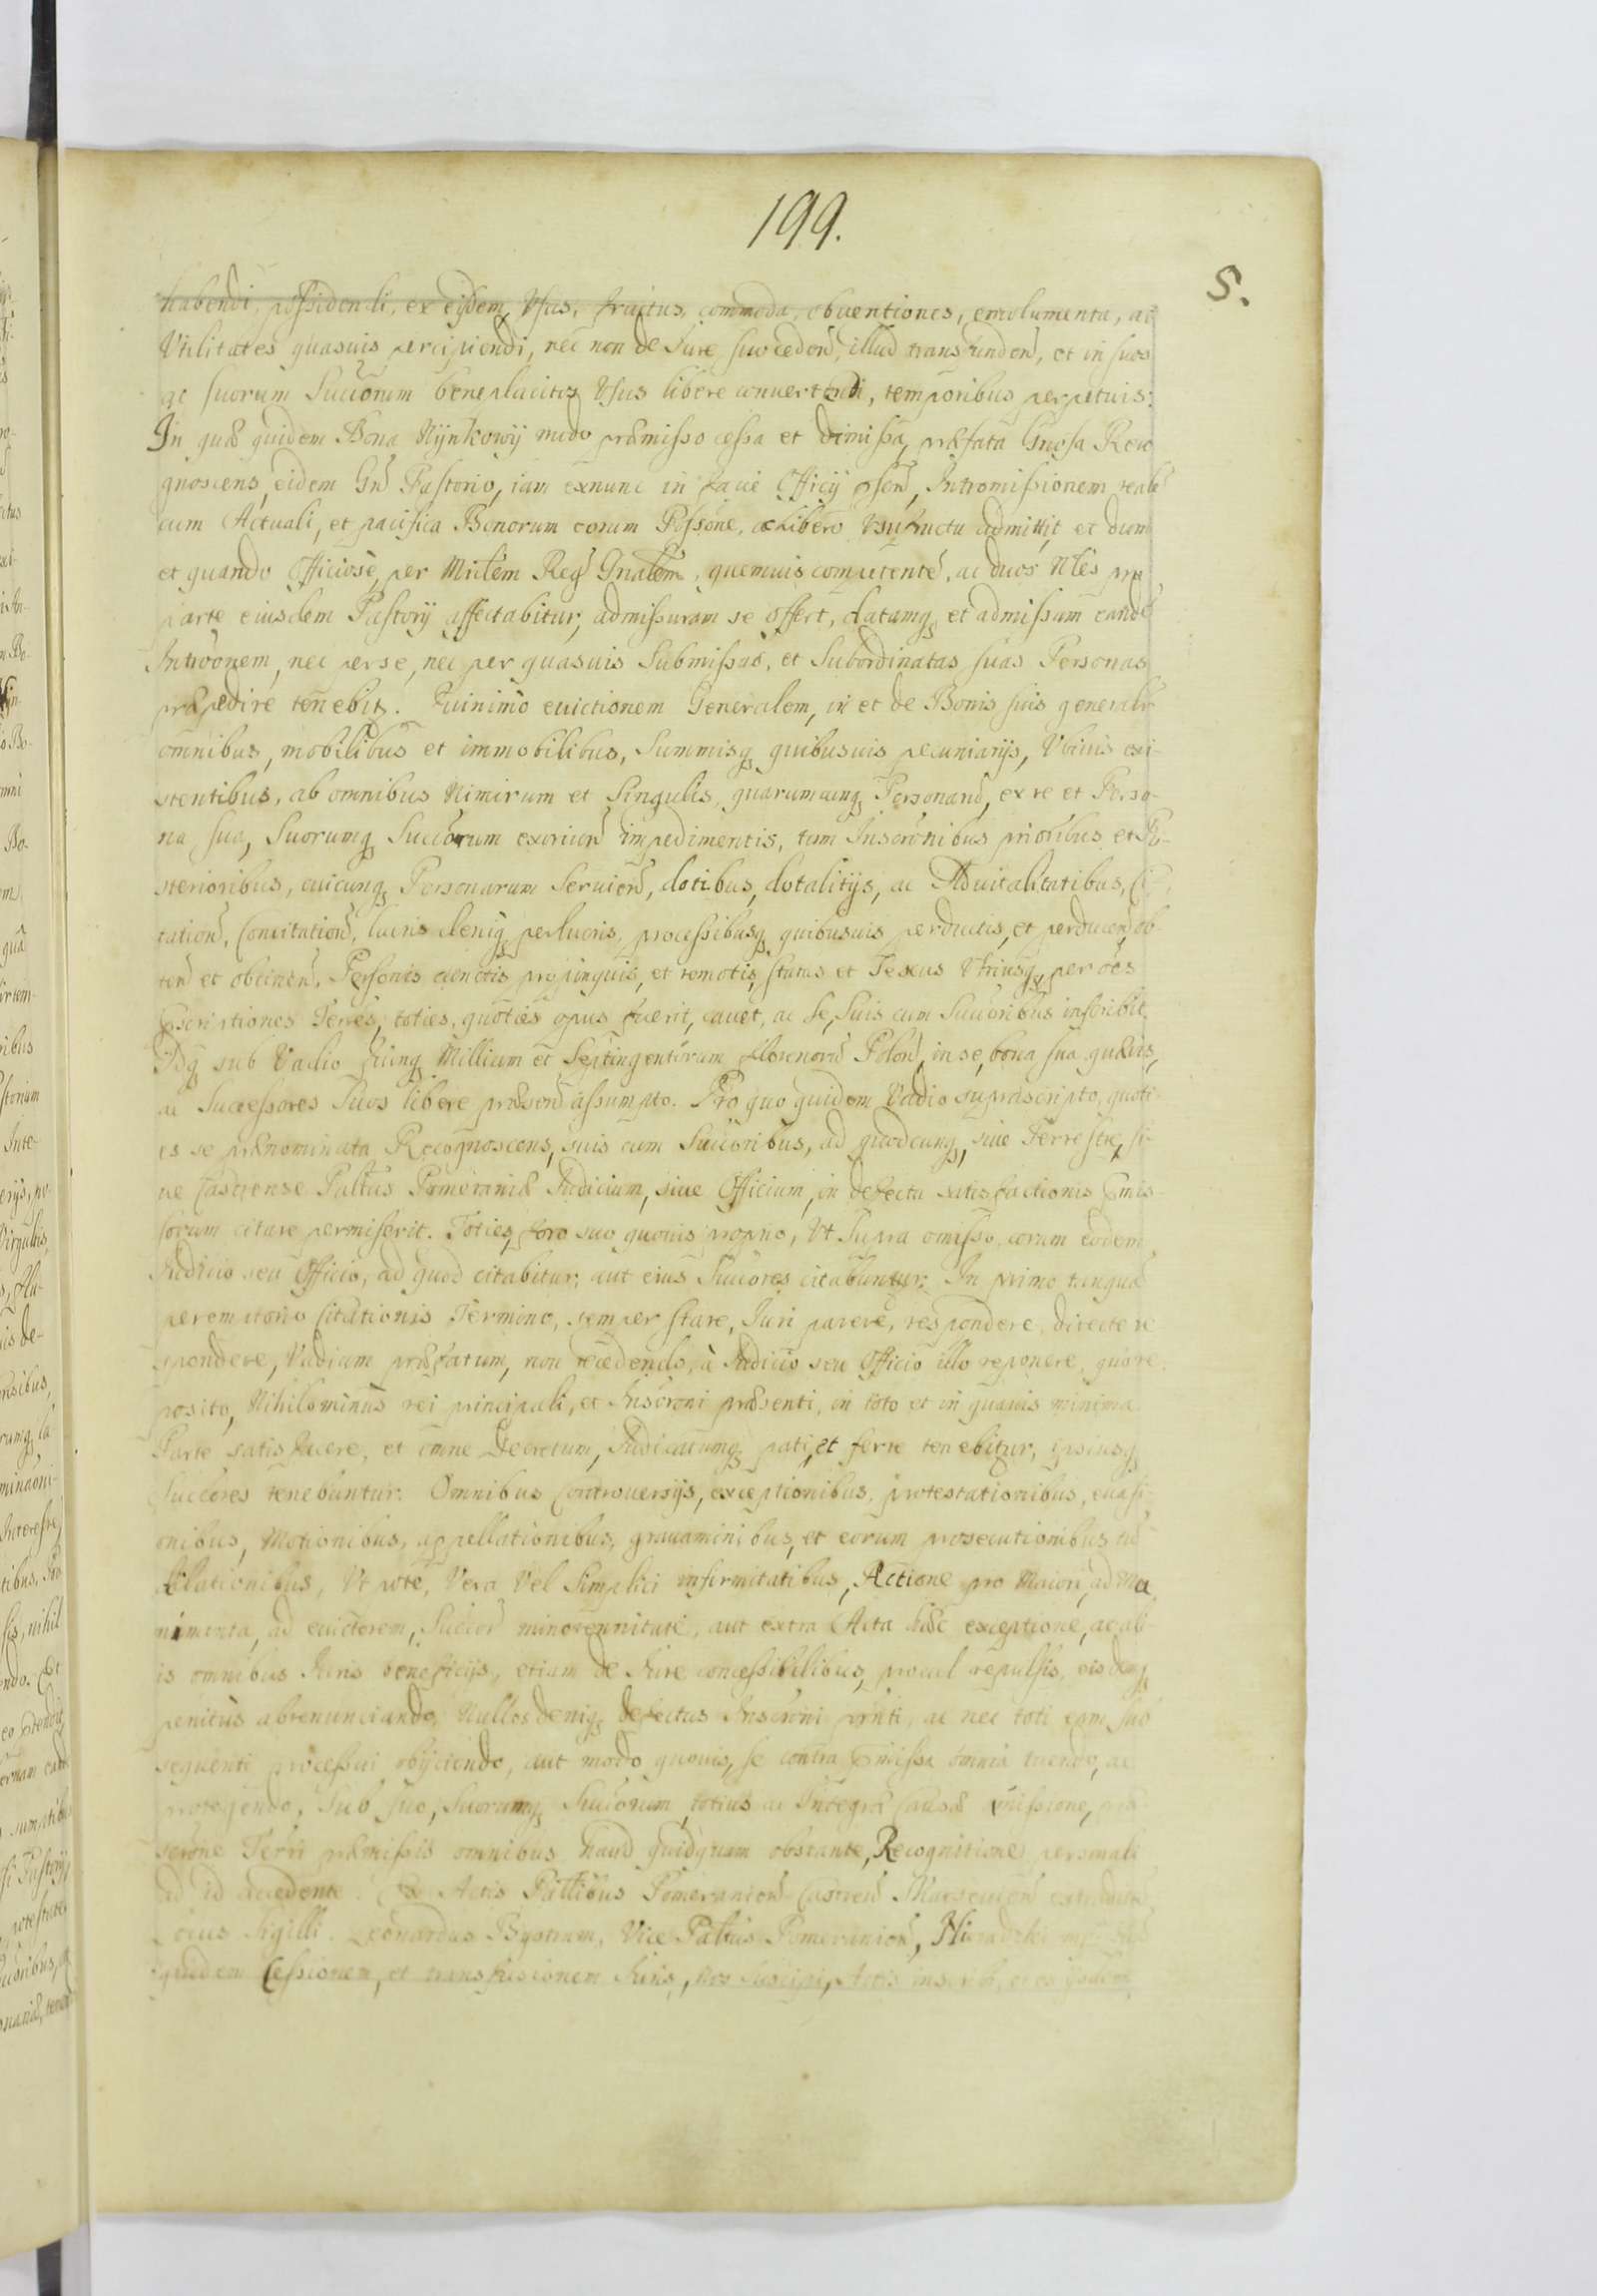 199.
5.
habendi, possidendi, ex eisdem Usus, fructus, commoda, obuentiones, emolumenta, ac
Utilitates quasuis percipiendi, nec non de Jure succedend, illud transfundend, et in suos
ac suorum Succorum beneplacitos Usus libere conuertendi, temporibus perpetuis:
In quæ quidem Bona Nynkowy modo præmisso cessa et dimissa, præfata Gnosa Reco
gnoscens, eidem Gnd Pastorio, iam exnunc in facie Officij psen, Intromissionem reale
cum Actuali, et pacifica Bonorum eorum Possone, ac libero Usufructu admittit, et dum
et quando Officiose, per Mrlem Regn Gnalem, quemuis competente, ac duos Nles pro
parte eiusdem Pastorij affectabitur, admissuram se offert, datamq et admissam eande
Introonem, nec per se, nec per quasuis Submissas, et Subordinatas suas Personas
præpedire tenebit. Quinimo euictionem Generalem, in et de Bonis suis generalr
omnibus, mobilibus et immobilibus, Summisq quibusuis pecuniarijs, Ubiuis exi-
stentibus, ab omnibus Nimirum et Singulis, quarumcunq Personaru, ex re et Perso-
na sua, Suorumq Succorum exoriend impedimentis, tum Inscronibus prioribus et Po-
sterioribus, cuicunq Personarum Seruien, dotibus, dotalitijs, ac Aduitalitatibus, Ci-
tation, Concitation, lucris deniq perlucris, processibusq quibusuis perductis, et perducen, ob-
ten et obtinen, Personis cunctis propinquis, et remotis, status et Sexus Utriusq, per oes
Pscriptiones Terres, toties, quoties opus fuerit, cauet, ac se, Suis cum Succoribus inscribit
Idq sub Vadio Quinq Millium et Septingentorum florenoru Polon, in se, bona sua quæuis,
ac Successores Suos libere præsen assumpto. Pro quo quidem Vadio suprascripto, quoti-
es se prænominata Recognoscens, suis cum Succoribus, ad quodcunq, siue Terrestre, si-
ue Castrense Paltus Pomeraniæ Judicium, siue Officium, in defectu satisfactionis pmis-
sorum citare permiserit. Toties, foro suo quouis proprio, Ut Supra omisso, coram eodem
Judicio seu Officio, ad quod citabitur, aut eius Succores citabuntur. In primo tanqua
peremptorio Citationis Termino, semper stare, Juri parere, respondere, directe re
spondere, Vadium præfatum, non recedendo, à Judicio seu Officio illo reponere, quo re
posito, Nihilominus rei principali, et Inscroni præsenti, in toto et in quauis minima
Parte satisfacere, et omne Decretum, Judicatumq pati, et ferre tenebitur, ipsiusq
Succores tenebuntur. Omnibus Controuersijs, exceptionibus, protestationibus, euasi-
onibus, Motionibus, appellationibus, grauaminibus, et eorum prosecutionibus tu
dilationibus, Ut pote, Vera Vel Simplici infirmitatibus, Actione pro Maiori, ad Mu
nimenta, ad euictorem, Succor minorennitate, aut extra Acta hæc exceptione, ac ali
is omnibus Juris beneficijs, etiam de Jure concessibilibus, procul repulsis, eisdemq
penitùs abrenunciando, Nullos deniq defectus Inscroni pnti, ac nec toti eam sub
sequenti processui obijciendo, aut modo quouis, se contra pmissa omnia tuendo, ac
protegendo, Sub suo, Suorumq Succorum, totius ac Integræ Causæ Amissione,
Terri præmissis omnibus haud quidquam obstante, Recognitione personali
ad id accedente. Ex Actis Paltibus Pomeranien Castren
Locus Sigilli. Leonardus Bystram, Vice Paltus Pomeranien,
quidem Cessionem, et transfusionem Juris, Nos Suscipi, Actis